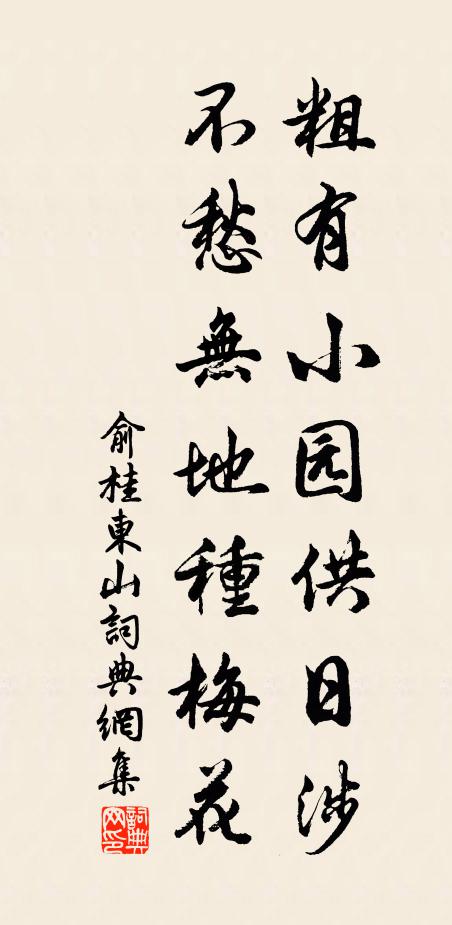 粗有小园供日涉
不愁無地種梅花
俞桂東山詞典網集
詞典网印